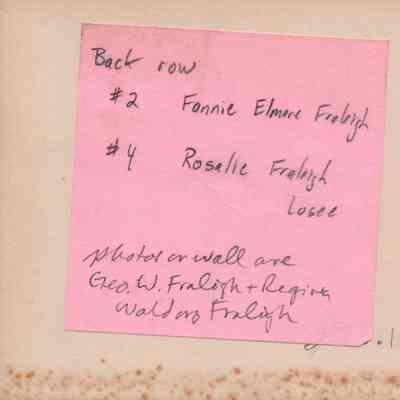 Back row
#2 Fannie Elmore Fraleigh
#4 Rosalie Fraleigh
Losee
photos on wall are
Geo. W. Fraleigh + Regina
Waldorf Fraleigh